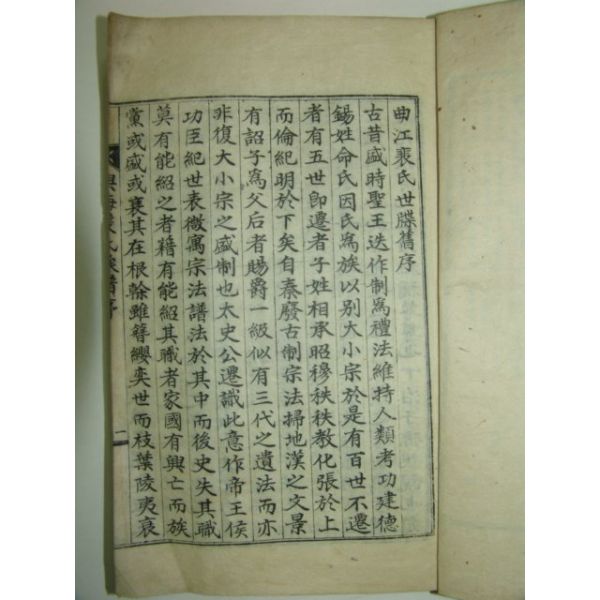 曲江裴氏世牒舊序
古昔盛時聖王迭作制爲禮法維持人類考功建德
錫姓命氏因氏爲族以别大小宗於是有百世不遷
者有五世卽遷者子姓相承昭穆秩秩教化張於上
而倫紀明於下矣自秦廢古制宗法掃地漢之文景
有詔子爲父后者賜爵一級似有三代之遺法而亦
非復大小宗之盛制也太史公遷識此意作帝王侯
功臣紀世表微寓宗法譜法於其中而後史失其職
莫有能紹之者藉有能紹其職者家國有興亡而族
黨或盛或衰其在根榦雖簪纓奕世而枝葉陵夷衰
興海裴氏族譜序
一